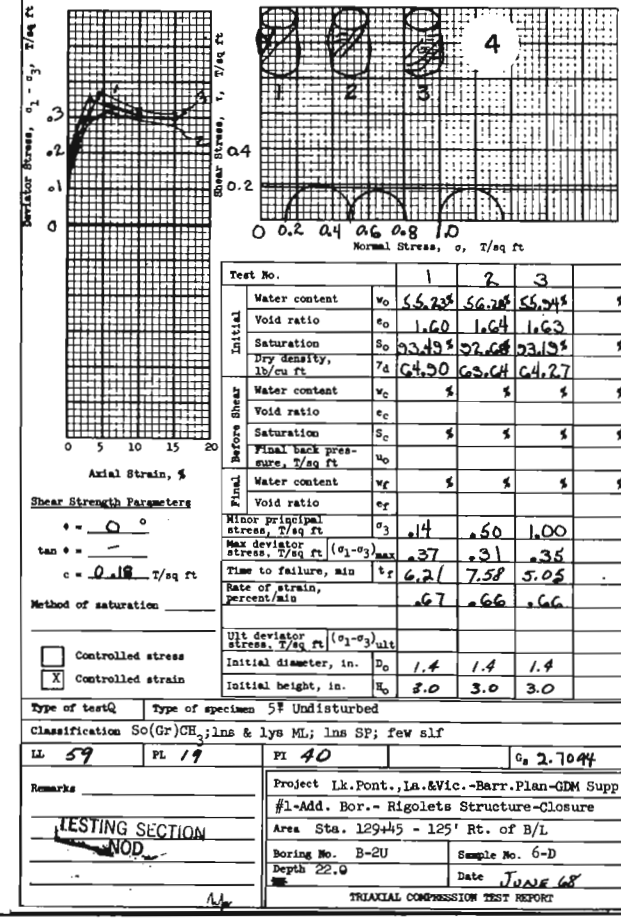 Deviator Stress, σ1 - σ3, T/sq ft
.3
.2
.1
0
0 5 10 15 20
Axial Strain, %
1
3
2
Shear Stress, τ, T/sq ft
0.4
0.2
1 2 3
4
0 0.2 0.4 0.6 0.8 1.0
Normal Stress, σ, T/sq ft
Shear Strength Parameters
φ = 0 °
tan φ = —
c = 0.18 T/sq ft
Method of saturation
Controlled stress
X Controlled strain
Test No. 1 2 3
Initial
Water content w₀ 55.23% 56.28% 55.94% %
Void ratio e₀ 1.60 1.64 1.63
Saturation S₀ 93.49% 92.68% 93.19% %
Dry density, lb/cu ft γd 64.90 63.64 64.27
Before Shear
Water content wc % % % %
Void ratio ec
Saturation Sc % % % %
Final back pressure, T/sq ft u₀
Final
Water content wf % % % %
Void ratio ef
Minor principal stress, T/sq ft σ3 .14 .50 1.00
Max deviator stress, T/sq ft (σ1-σ3)max .37 .31 .35
Time to failure, min tf 6.21 7.58 5.05
Rate of strain, percent/min .67 .66 .66
Ult deviator stress, T/sq ft (σ1-σ3)ult
Initial diameter, in. D₀ 1.4 1.4 1.4
Initial height, in. H₀ 3.0 3.0 3.0
Type of test Q Type of specimen 5" Undisturbed
Classification So(Gr)CH₃;lns & lys ML; lns SP; few slf
LL 59 PL 19 PI 40 Gs 2.7044
Remarks
TESTING SECTION
NOD
Project Lk.Pont.,La.&Vic.-Barr.Plan-GDM Supp
#1-Add. Bor.- Rigolets Structure-Closure
Area Sta. 129+45 - 125' Rt. of B/L
Boring No. B-2U Sample No. 6-D
Depth 22.0 Date JUNE 68
TRIAXIAL COMPRESSION TEST REPORT